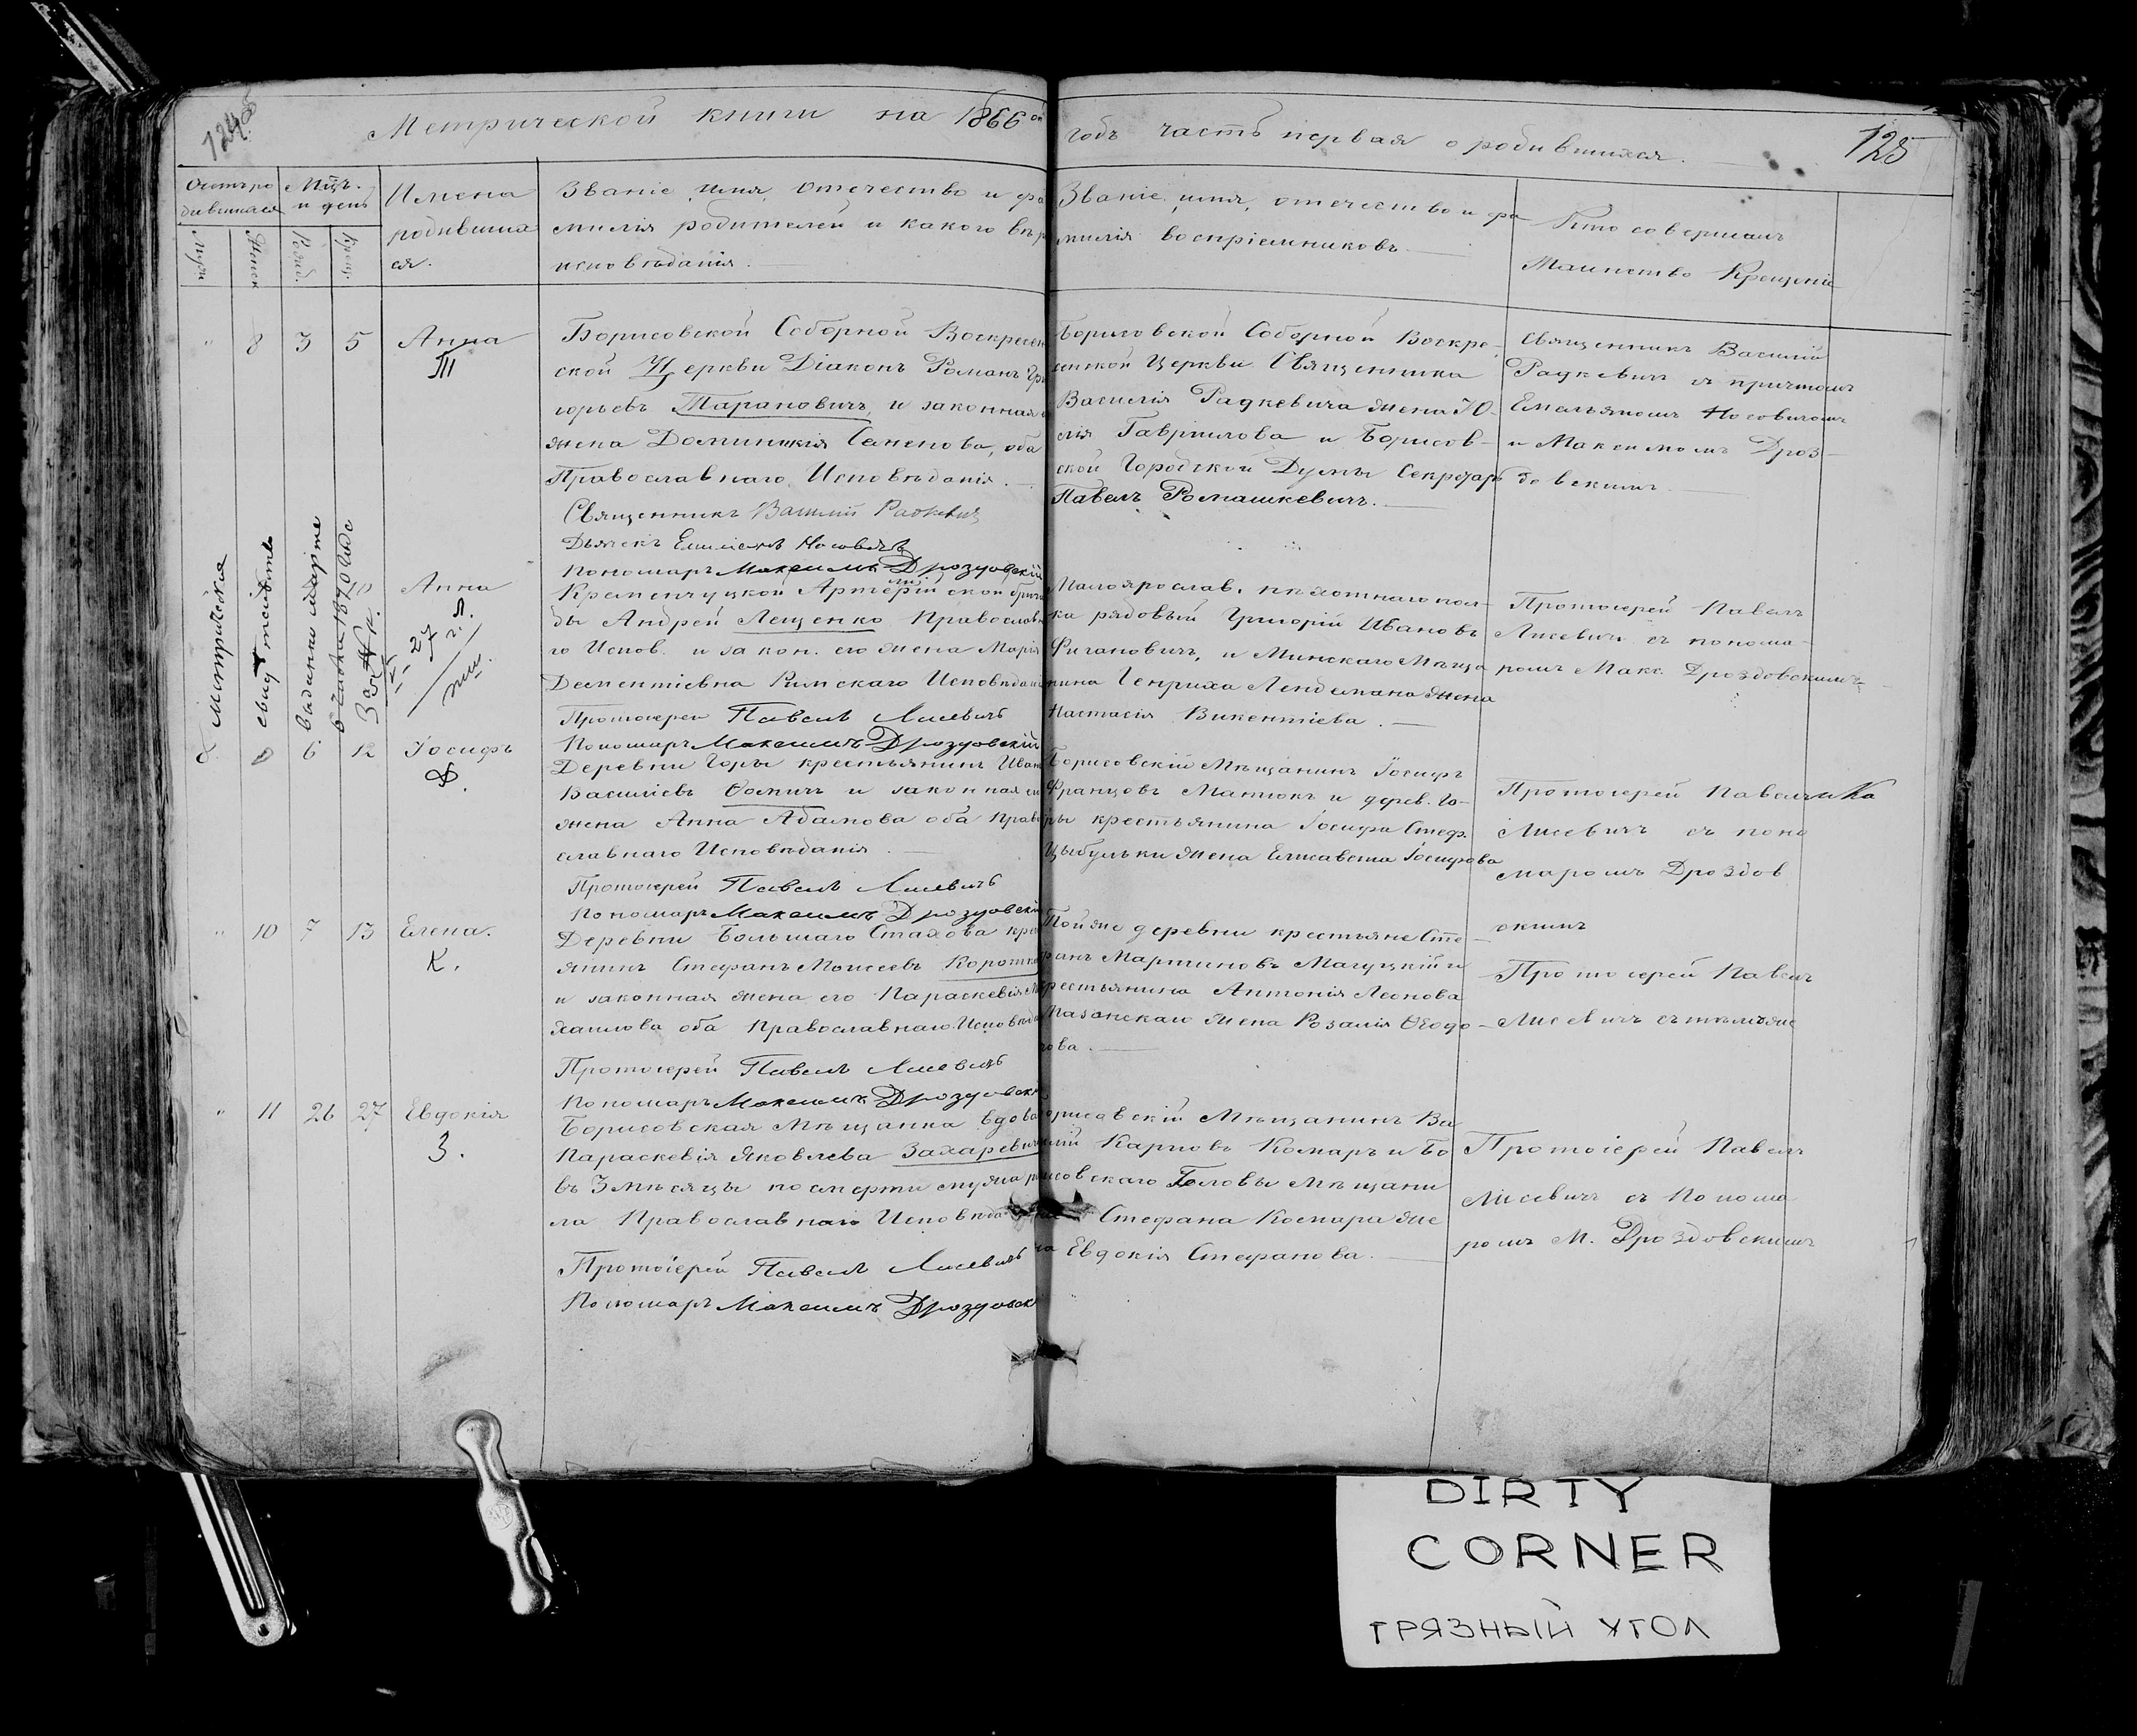 Метрической книги на 1866ой
годъ часть первая о родившихся.
125
Имена
родивших
ся.
Званіе, имя, отечество и фа
милія родителей и какого вѣр
исповѣданія.
Званіе, имя, отечество и фа
милія воспріемниковъ
Кто совершалъ
Таинство Крещенія
8 3 5 Анна
Т
Борисовской Соборной Воскресен
ской Церкви Діаконъ Романъ Гри
горьевъ Тарановичъ, и законная
жена Доминикія Семенова, оба
Православнаго Исповѣданія.
Священникъ Василій Радкевичъ
Пономарь Максимъ Дроздовскій
Борисовской Соборной Воскре-
сенской Церкви Священника
Василія Радкевича жена Ю-
лія Гавріилова и Борисов-
ской Городской Думы Секретарь
Павелъ Ромашкевичъ.
Священникъ Василій
Радкевичъ съ причтомъ
Емельяномъ Носовичомъ
и Максимомъ Дроз-
довскимъ
Метрическое
свидѣтельство
выдано марта
6 числа 1870 года
За №
10 Анна
Кременчуцкой Артерійской брига
ды Андрей Лещенко Православн
го Испов. и закон. его жена Марія
Дементіевна Римскаго Исповѣданія
Протоіерей Павелъ Лисевичъ
Пономарь Максимъ Дроздовскій
Малоярослав. пѣхотнаго пол-
ка рядовый Григорій Ивановъ
и Минскаго Мѣща
нина Генриха Лендемана жена
Настасія Викентіева.
Протоіерей Павелъ
Лисевичъ съ понома-
ромъ Макс. Дроздовскимъ
6 12 Іосифъ
Ѳ.
Деревни Горы крестьянинъ Иванъ
Василіевъ Ѳомичъ и законная его
жена Анна Адамова оба Право
славнаго Исповѣданія
Протоіерей Павелъ Лисевичъ
Пономарь Максимъ Дроздовскій
Борисовскій Мѣщанинъ Іосифъ
Францовъ Матюкъ и дерев. Го-
ры крестьянина Іосифа Стеф.
Цыбульки жена Елисавета Іосифова
Протоіерей Павелъ
Лисевичъ съ поно
маромъ Дроздов
скимъ
10 7 13 Елена.
К.
Деревни Большаго Стахова крест
янинъ Стефанъ Моисеевъ Коротке
и законная жена его Параскевія Ми
хаилова оба Православнаго Исповѣда
Протоіерей Павелъ Лисевичъ
Пономарь Максимъ Дроздовскій
Той же деревни крестьяне Сте-
фанъ Мартиновъ Мацуцкій и
крестьянина Антонія Леонова
Мазонскаго жена Розалія Ѳеодо-
рова.
Протоіерей Павелъ
Лисевичъ съ тѣмъ же
11 26 27 Евдокія
З.
Борисовская Мѣщанка вдова
Параскевія Яковлева Захаревичъ
въ 3 мѣсяцы по смерти мужа ро
ла Православнаго Исповѣда
Протоіерей Павелъ Лисевичъ
Пономарь Максимъ Дроздовск
Борисовскій Мѣщанинъ Ва
силій Карповъ Комаръ и Бо
рисовскаго Головы Мѣщани
на Стефана Комара же
на Евдокія Стефанова.
Протоіерей Павелъ
Лисевичъ съ Понома
ромъ М. Дроздовскимъ
DIRTY
CORNER
ГРЯЗНЫЙ УГОЛ